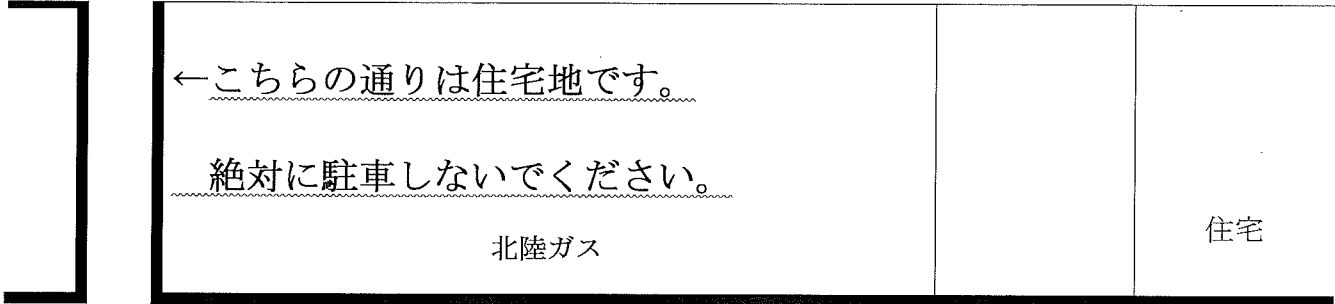 ←こちらの通りは住宅地です。
絶対に駐車しないでください。
北陸ガス
住宅